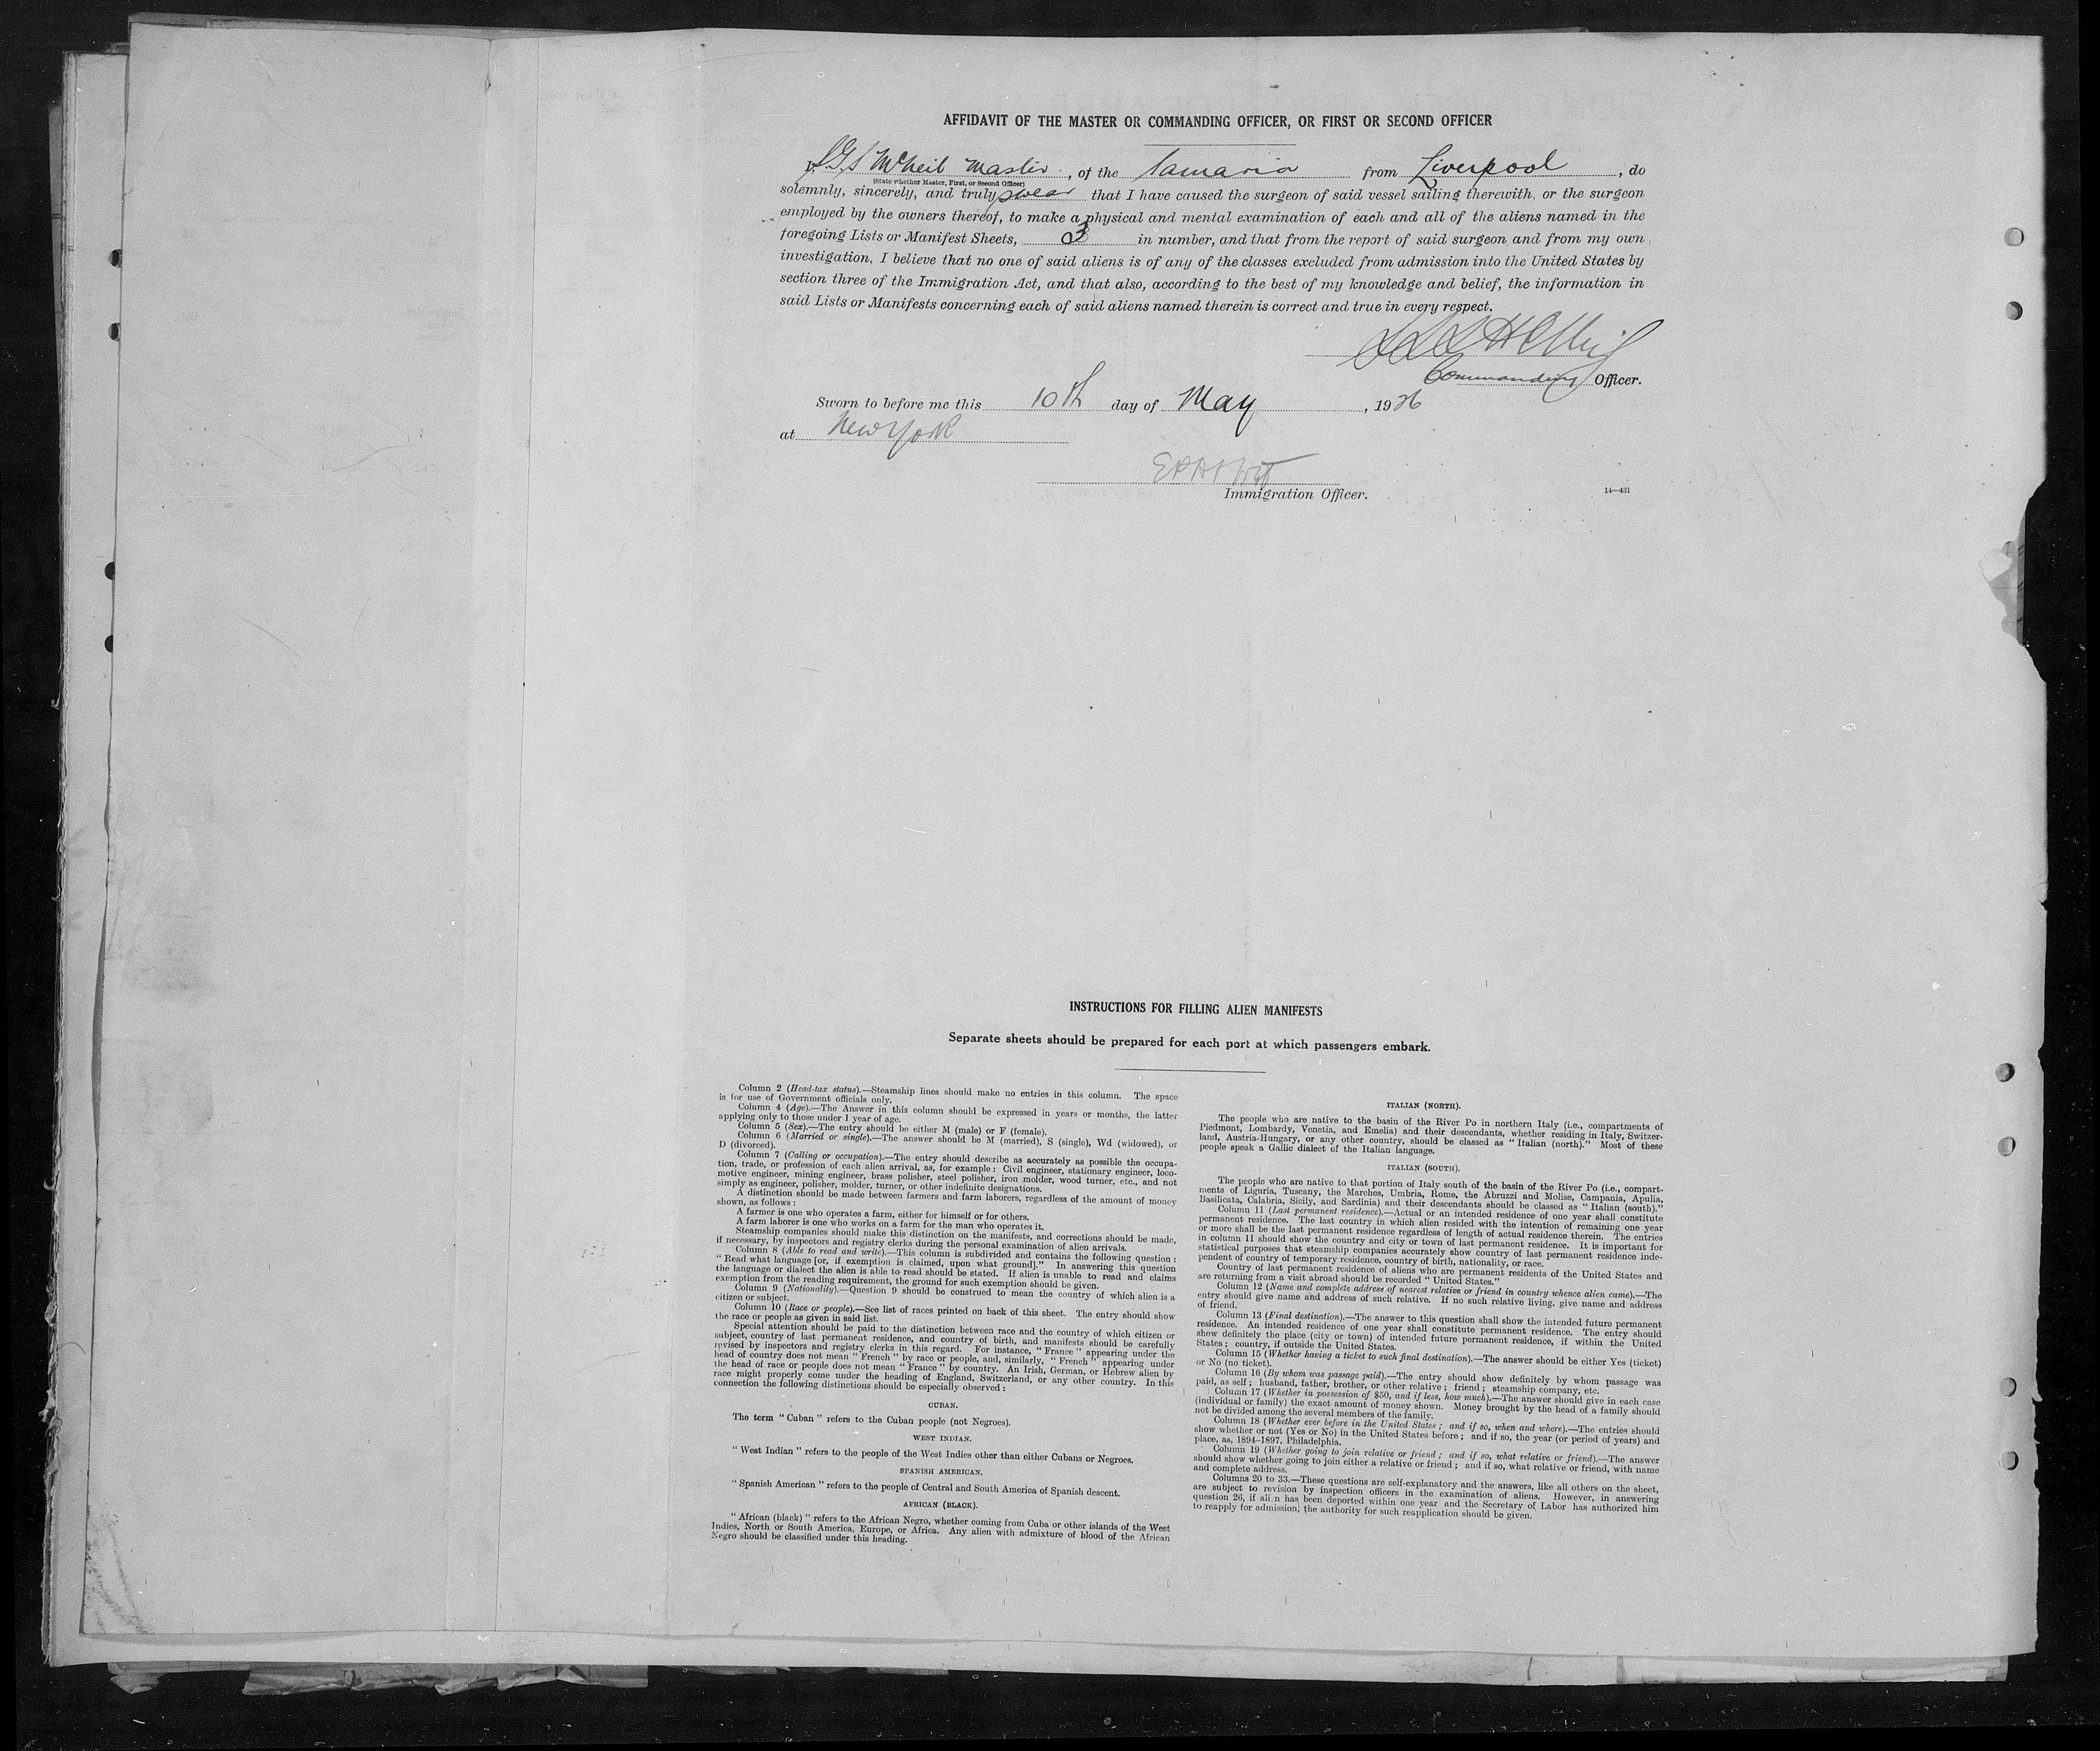 AFFIDAVIT OF THE MASTER OR COMMANDING OFFICER, OR FIRST OR SECOND OFFICER
I, S G S McNeil Master, of the Samaria from Liverpool, do
(State whether Master, First, or Second Officer)
solemnly, sincerely, and truly swear that I have caused the surgeon of said vessel sailing therewith, or the surgeon
employed by the owners thereof, to make a physical and mental examination of each and all of the aliens named in the
foregoing Lists or Manifest Sheets, 3 in number, and that from the report of said surgeon and from my own
investigation, I believe that no one of said aliens is of any of the classes excluded from admission into the United States by
section three of the Immigration Act, and that also, according to the best of my knowledge and belief, the information in
said Lists or Manifests concerning each of said aliens named therein is correct and true in every respect.
Commanding Officer.
Sworn to before me this 10th day of May, 1926
at New York
Immigration Officer.
14—431
INSTRUCTIONS FOR FILLING ALIEN MANIFESTS
Separate sheets should be prepared for each port at which passengers embark.
Column 2 (Head-tax status).—Steamship lines should make no entries in this column. The space
is for use of Government officials only.
Column 4 (Age).—The Answer in this column should be expressed in years or months, the latter
applying only to those under 1 year of age.
Column 5 (Sex).—The entry should be either M (male) or F (female).
Column 6 (Married or single).—The answer should be M (married), S (single), Wd (widowed), or
D (divorced).
Column 7 (Calling or occupation).—The entry should describe as accurately as possible the occupa-
tion, trade, or profession of each alien arrival, as, for example: Civil engineer, stationary engineer, loco-
motive engineer, mining engineer, brass polisher, steel polisher, iron molder, wood turner, etc., and not
simply as engineer, polisher, molder, turner, or other indefinite designations.
A distinction should be made between farmers and farm laborers, regardless of the amount of money
shown, as follows:
A farmer is one who operates a farm, either for himself or for others.
A farm laborer is one who works on a farm for the man who operates it.
Steamship companies should make this distinction on the manifests, and corrections should be made,
if necessary, by inspectors and registry clerks during the personal examination of alien arrivals.
Column 8 (Able to read and write).—This column is subdivided and contains the following question:
"Read what language [or, if exemption is claimed, upon what ground]." In answering this question
the language or dialect the alien is able to read should be stated. If alien is unable to read and claims
exemption from the reading requirement, the ground for such exemption should be given.
Column 9 (Nationality).—Question 9 should be construed to mean the country of which alien is a
citizen or subject.
Column 10 (Race or people).—See list of races printed on back of this sheet. The entry should show
the race or people as given in said list.
Special attention should be paid to the distinction between race and the country of which citizen or
subject, country of last permanent residence, and country of birth, and manifests should be carefully
revised by inspectors and registry clerks in this regard. For instance, "France" appearing under the
head of country does not mean "French" by race or people, and, similarly, "French" appearing under
the head of race or people does not mean "France" by country. An Irish, German, or Hebrew alien by
race might properly come under the heading of England, Switzerland, or any other country. In this
connection the following distinctions should be especially observed:
CUBAN.
The term "Cuban" refers to the Cuban people (not Negroes).
WEST INDIAN.
"West Indian" refers to the people of the West Indies other than either Cubans or Negroes.
SPANISH AMERICAN.
"Spanish American" refers to the people of Central and South America of Spanish descent.
AFRICAN (BLACK).
"African (black)" refers to the African Negro, whether coming from Cuba or other islands of the West
Indies, North or South America, Europe, or Africa. Any alien with admixture of blood of the African
Negro should be classified under this heading.
ITALIAN (NORTH).
The people who are native to the basin of the River Po in northern Italy (i.e., compartments of
Piedmont, Lombardy, Venetia, and Emelia) and their descendants, whether residing in Italy, Switzer-
land, Austria-Hungary, or any other country, should be classed as "Italian (north)." Most of these
people speak a Gallic dialect of the Italian language.
ITALIAN (SOUTH).
The people who are native to that portion of Italy south of the basin of the River Po (i.e., compart-
ments of Liguria, Tuscany, the Marches, Umbria, Rome, the Abruzzi and Molise, Campania, Apulia,
Basilicata, Calabria, Sicily, and Sardinia) and their descendants should be classed as "Italian (south)."
Column 11 (Last permanent residence).—Actual or an intended residence of one year shall constitute
permanent residence. The last country in which alien resided with the intention of remaining one year
or more shall be the last permanent residence regardless of length of actual residence therein. The entries
in column 11 should show the country and city or town of last permanent residence. It is important for
statistical purposes that steamship companies accurately show country of last permanent residence inde-
pendent of country of temporary residence, country of birth, nationality, or race.
Country of last permanent residence of aliens who are permanent residents of the United States and
are returning from a visit abroad should be recorded "United States."
Column 12 (Name and complete address of nearest relative or friend in country whence alien came).—The
entry should give name and address of such relative. If no such relative living, give name and address
of friend.
Column 13 (Final destination).—The answer to this question shall show the intended future permanent
residence. An intended residence of one year shall constitute permanent residence. The entry should
show definitely the place (city or town) of intended future permanent residence, if within the United
States; country, if outside the United States.
Column 15 (Whether having a ticket to such final destination).—The answer should be either Yes (ticket)
or No (no ticket).
Column 16 (By whom was passage paid).—The entry should show definitely by whom passage was
paid, as self; husband, father, brother, or other relative; friend; steamship company, etc.
Column 17 (Whether in possession of $50, and if less, how much).—The answer should give in each case
(individual or family) the exact amount of money shown. Money brought by the head of a family should
not be divided among the several members of the family.
Column 18 (Whether ever before in the United States; and if so, when and where).—The entries should
show whether or not (Yes or No) in the United States before; and if so, the year (or period of years) and
place, as, 1894–1897, Philadelphia.
Column 19 (Whether going to join relative or friend; and if so, what relative or friend).—The answer
should show whether going to join either a relative or friend; and if so, what relative or friend, with name
and complete address.
Columns 20 to 33.—These questions are self-explanatory and the answers, like all others on the sheet,
are subject to revision by inspection officers in the examination of aliens. However, in answering
question 26, if alien has been deported within one year and the Secretary of Labor has authorized him
to reapply for admission, the authority for such reapplication should be given.